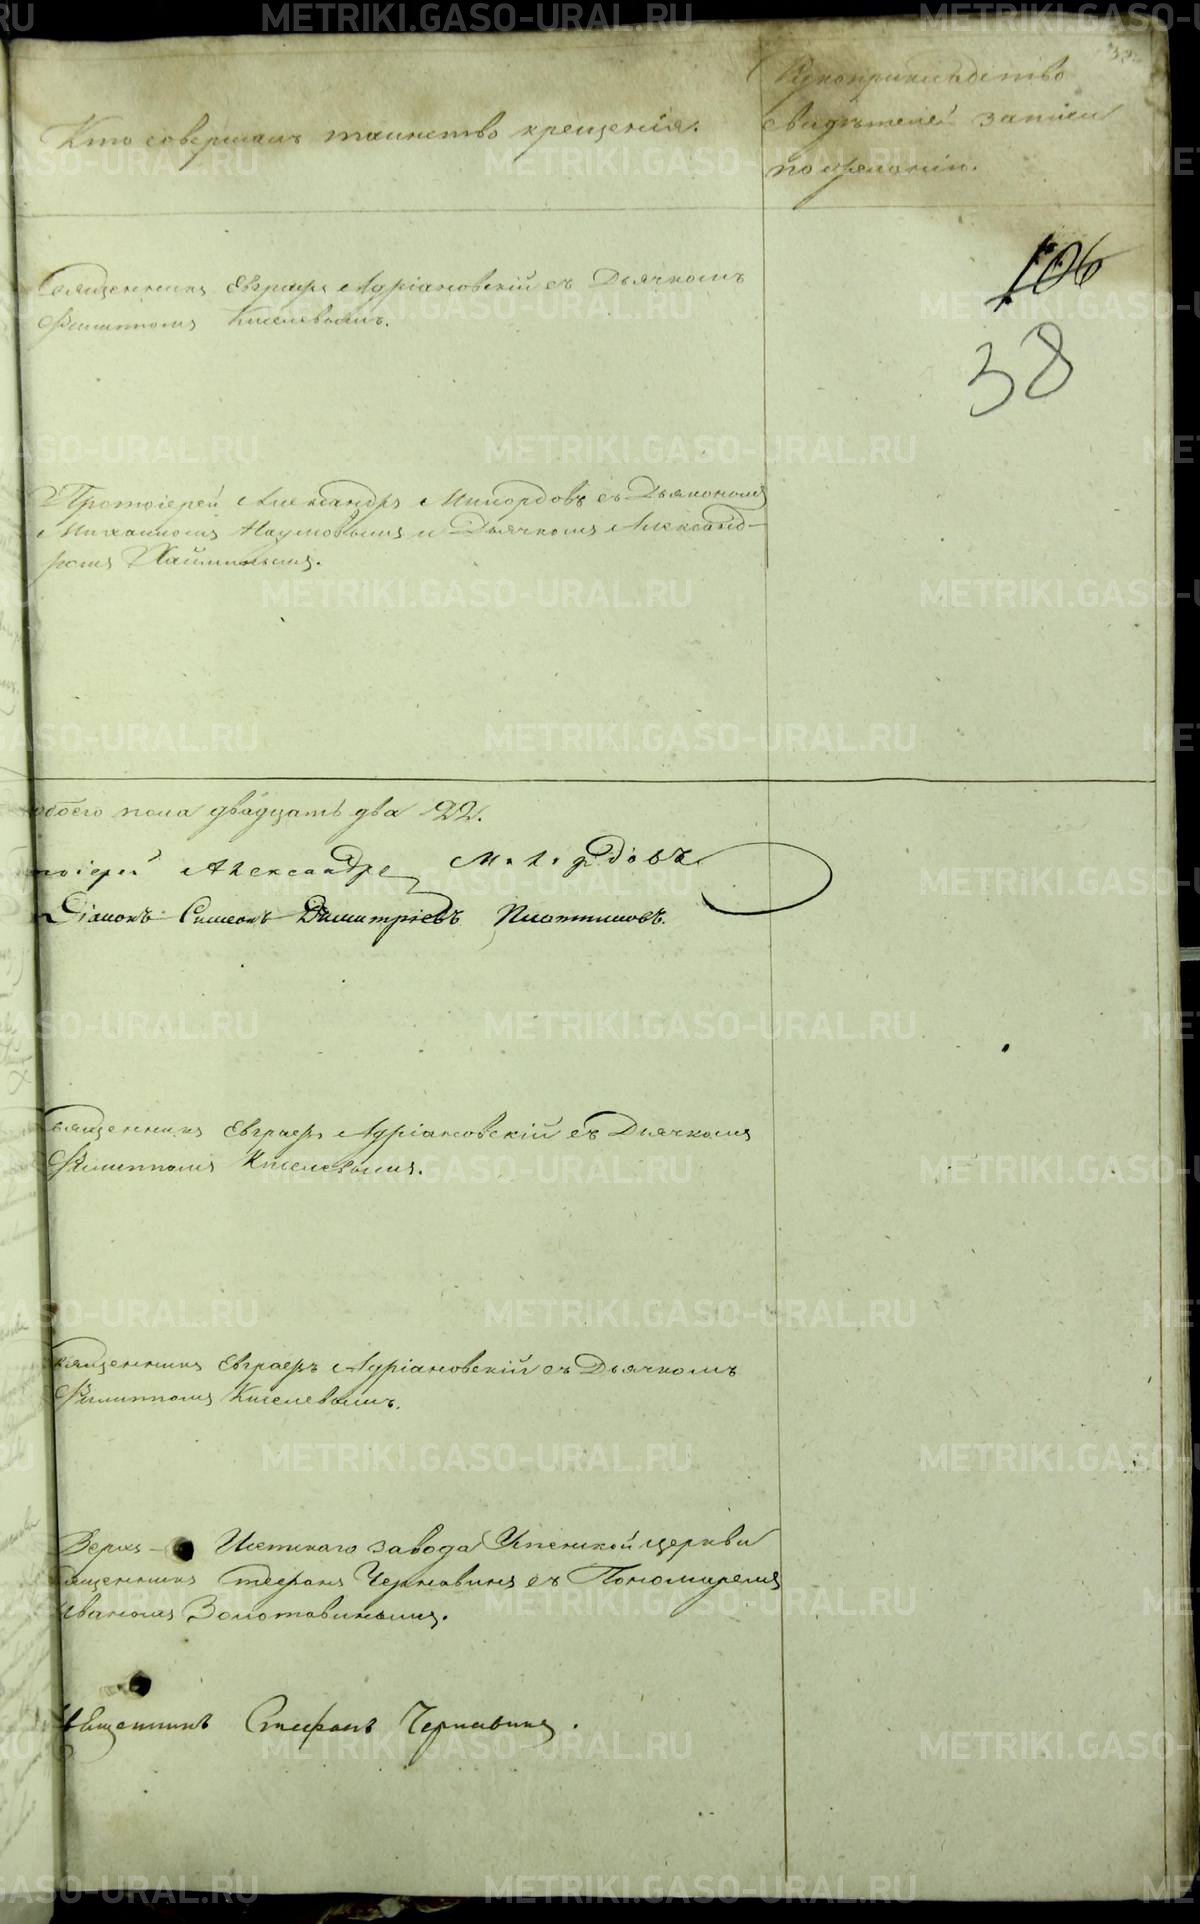 Кто совершалъ таинство крещенія.
Рукоприкладство
свидѣтелей записи
по желанію.
106
38
Священникъ Евграфъ Адріановскій съ Дьячкомъ
Филиппомъ Киселевымъ.
Протоіерей Александръ Милордовъ съ Дьякономъ
Михаиломъ Наумовымъ и Дьячкомъ Александ-
ромъ
обоего пола двадцать два 22.
тоіерей Александръ Милордовъ
Діаконъ Симеонъ Димитріевъ Плотниковъ.
Священникъ Евграфъ Адріановскій съ Дьячкомъ
Филиппомъ Киселевымъ.
Священникъ Евграфъ Адріановскій съ Дьячкомъ
Филиппомъ Киселевымъ.
Верхъ- Исетскаго завода Успенской церкви
Священникъ Стефанъ Чернавинъ съ Пономаремъ
Иваномъ Золотавинымъ.
Священникъ Стефанъ Чернавинъ.
METRIKI.GASO-URAL.RU